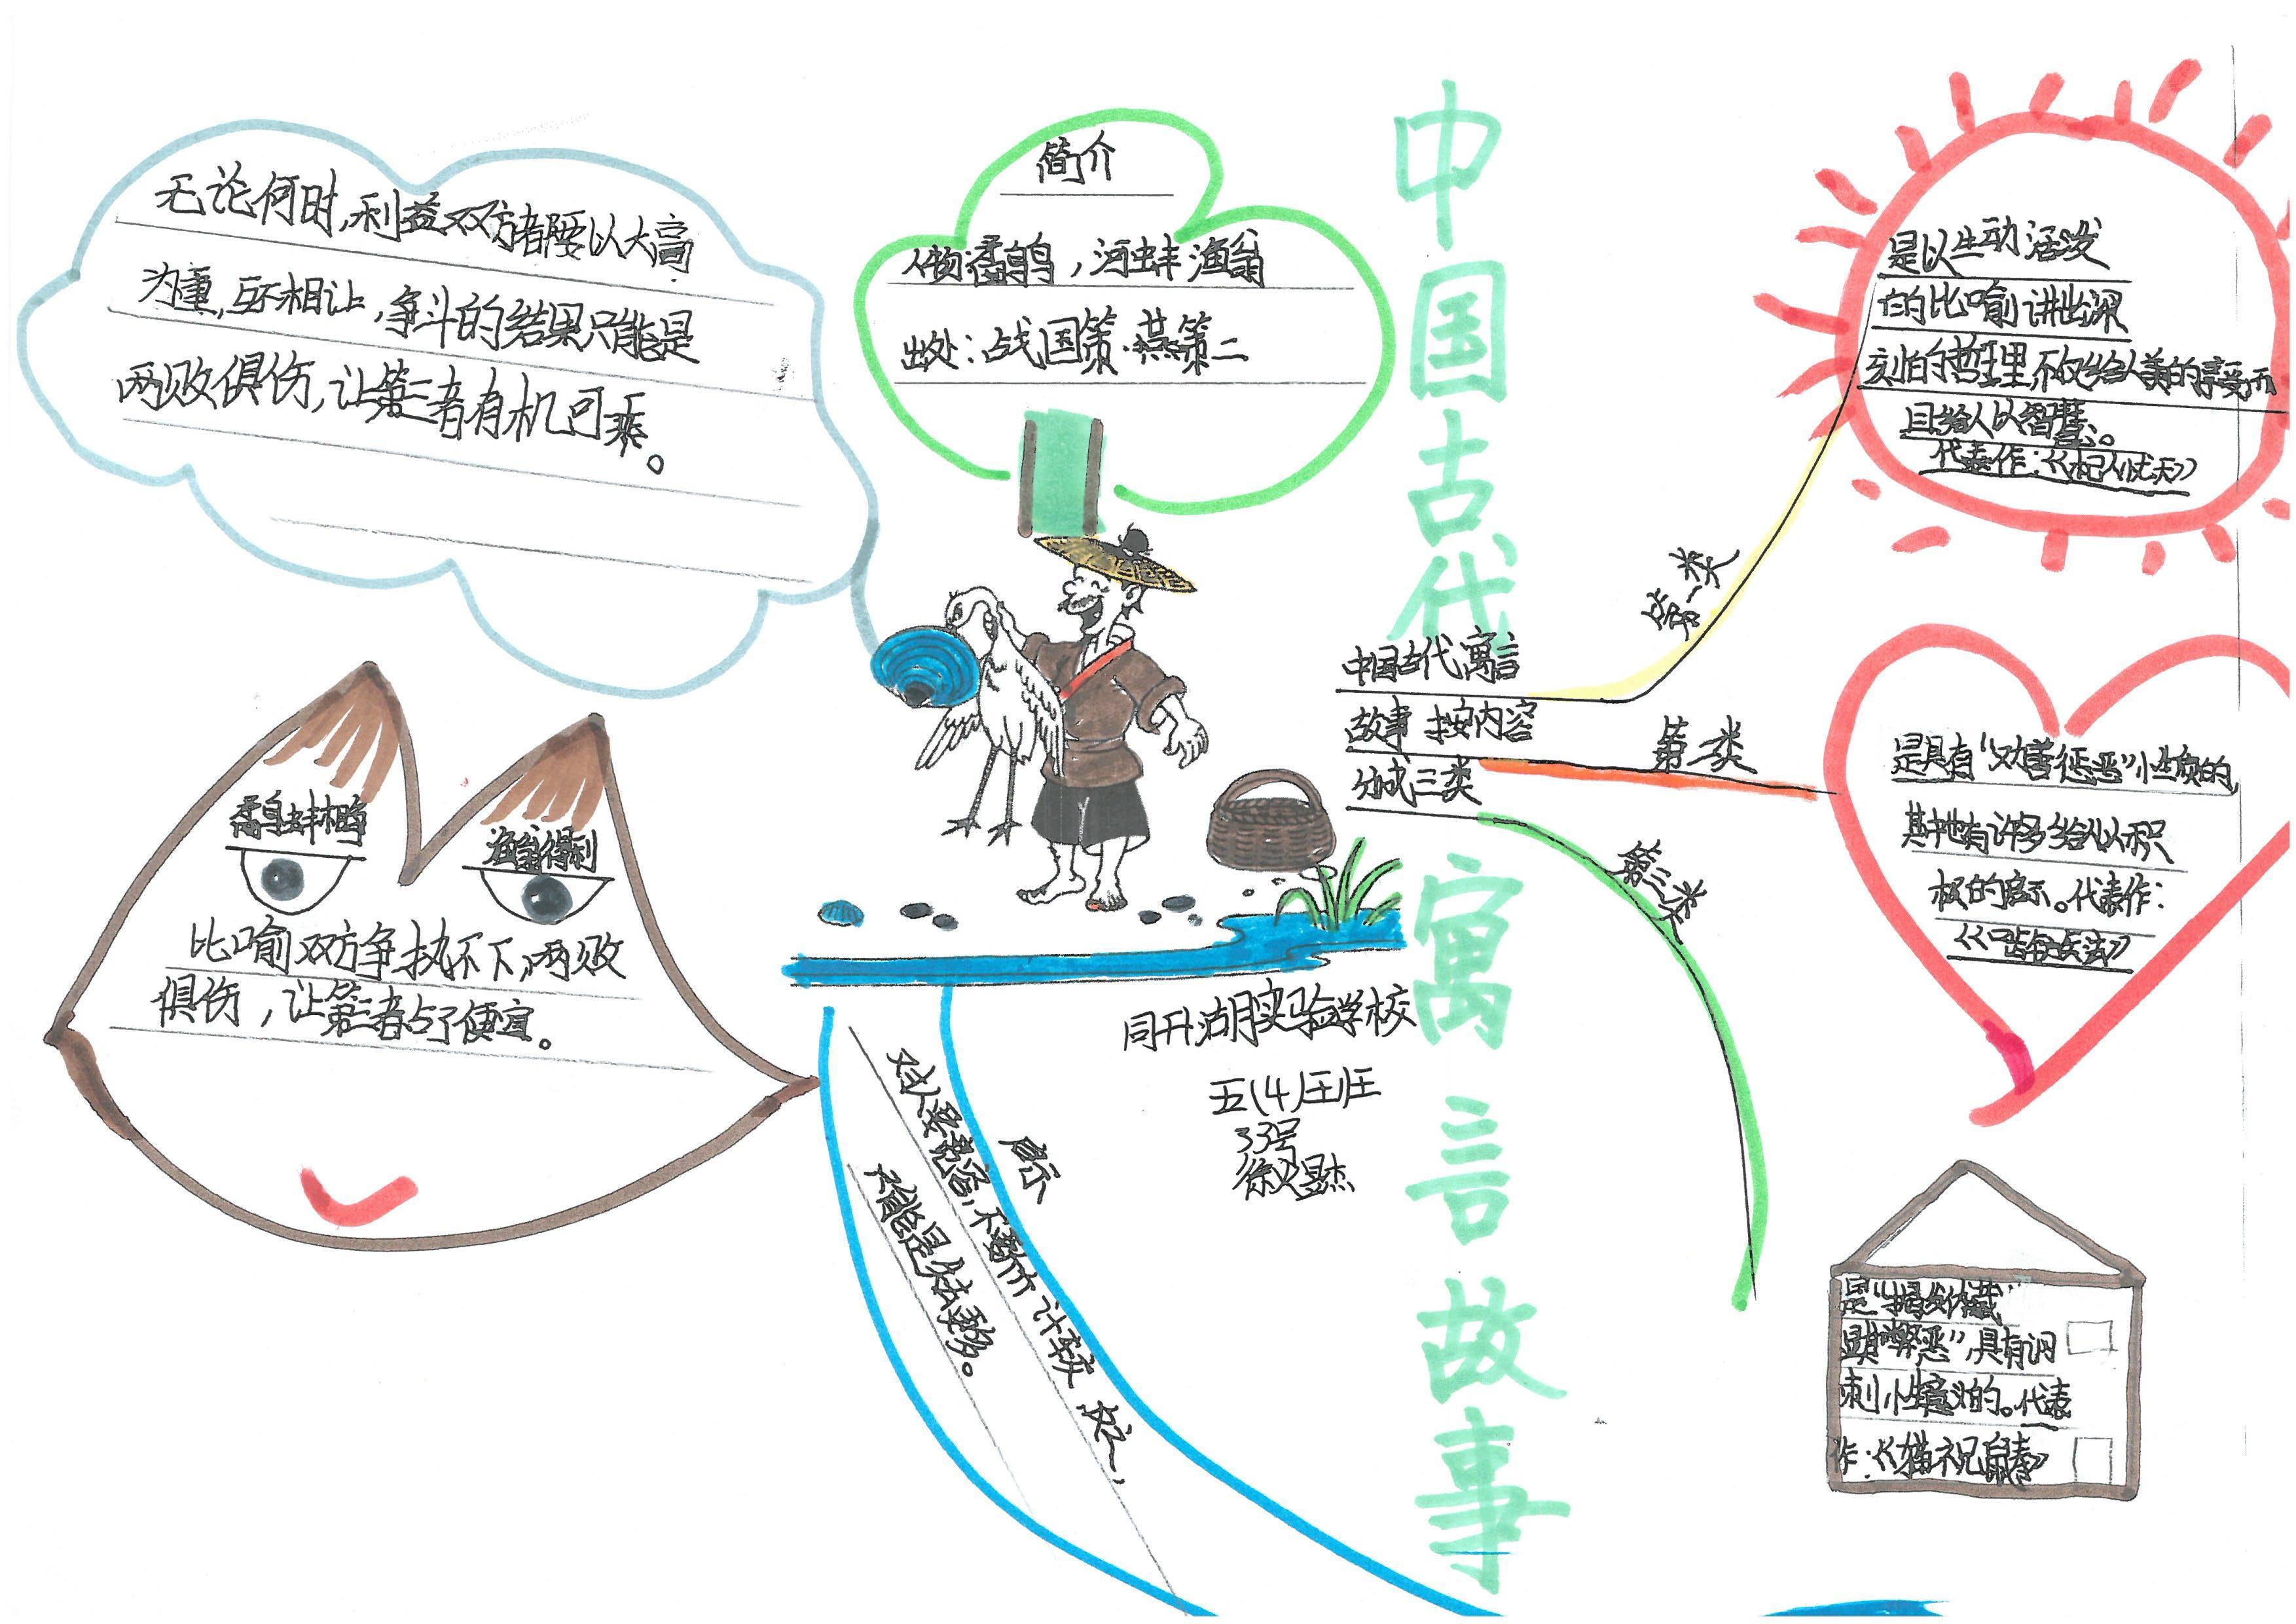 无论何时，利益双方都要以大局
为重，互相相让，争斗的结果只能是
两败俱伤，让第三者有机可乘。
简介
人物：鹬鸟，河蚌 渔翁
出处：战国策·燕策二
中国古代寓言故事
鹬蚌相争
渔翁得利
比喻双方争执不下，两败
俱伤，让第三者占了便宜。
启示
对人要宽容，不要斤斤计较，
才能
同升湖实验学校
五(4)班
33号
中国古代寓言
故事 按内容
分成三类
第一类
第二类
第三类
是以生动活泼
的比喻讲出深
刻的哲理，不仅给人美的享受，而
且给人以智慧。
代表作：《杞人忧天》
是具有“劝善惩恶”性质的，
其中也有许多给人以积
极的启示。代表作：
是“揭发伏藏
显其弊恶”，具有讽
刺性意义的。代表
作：《猫祝鼠寿》